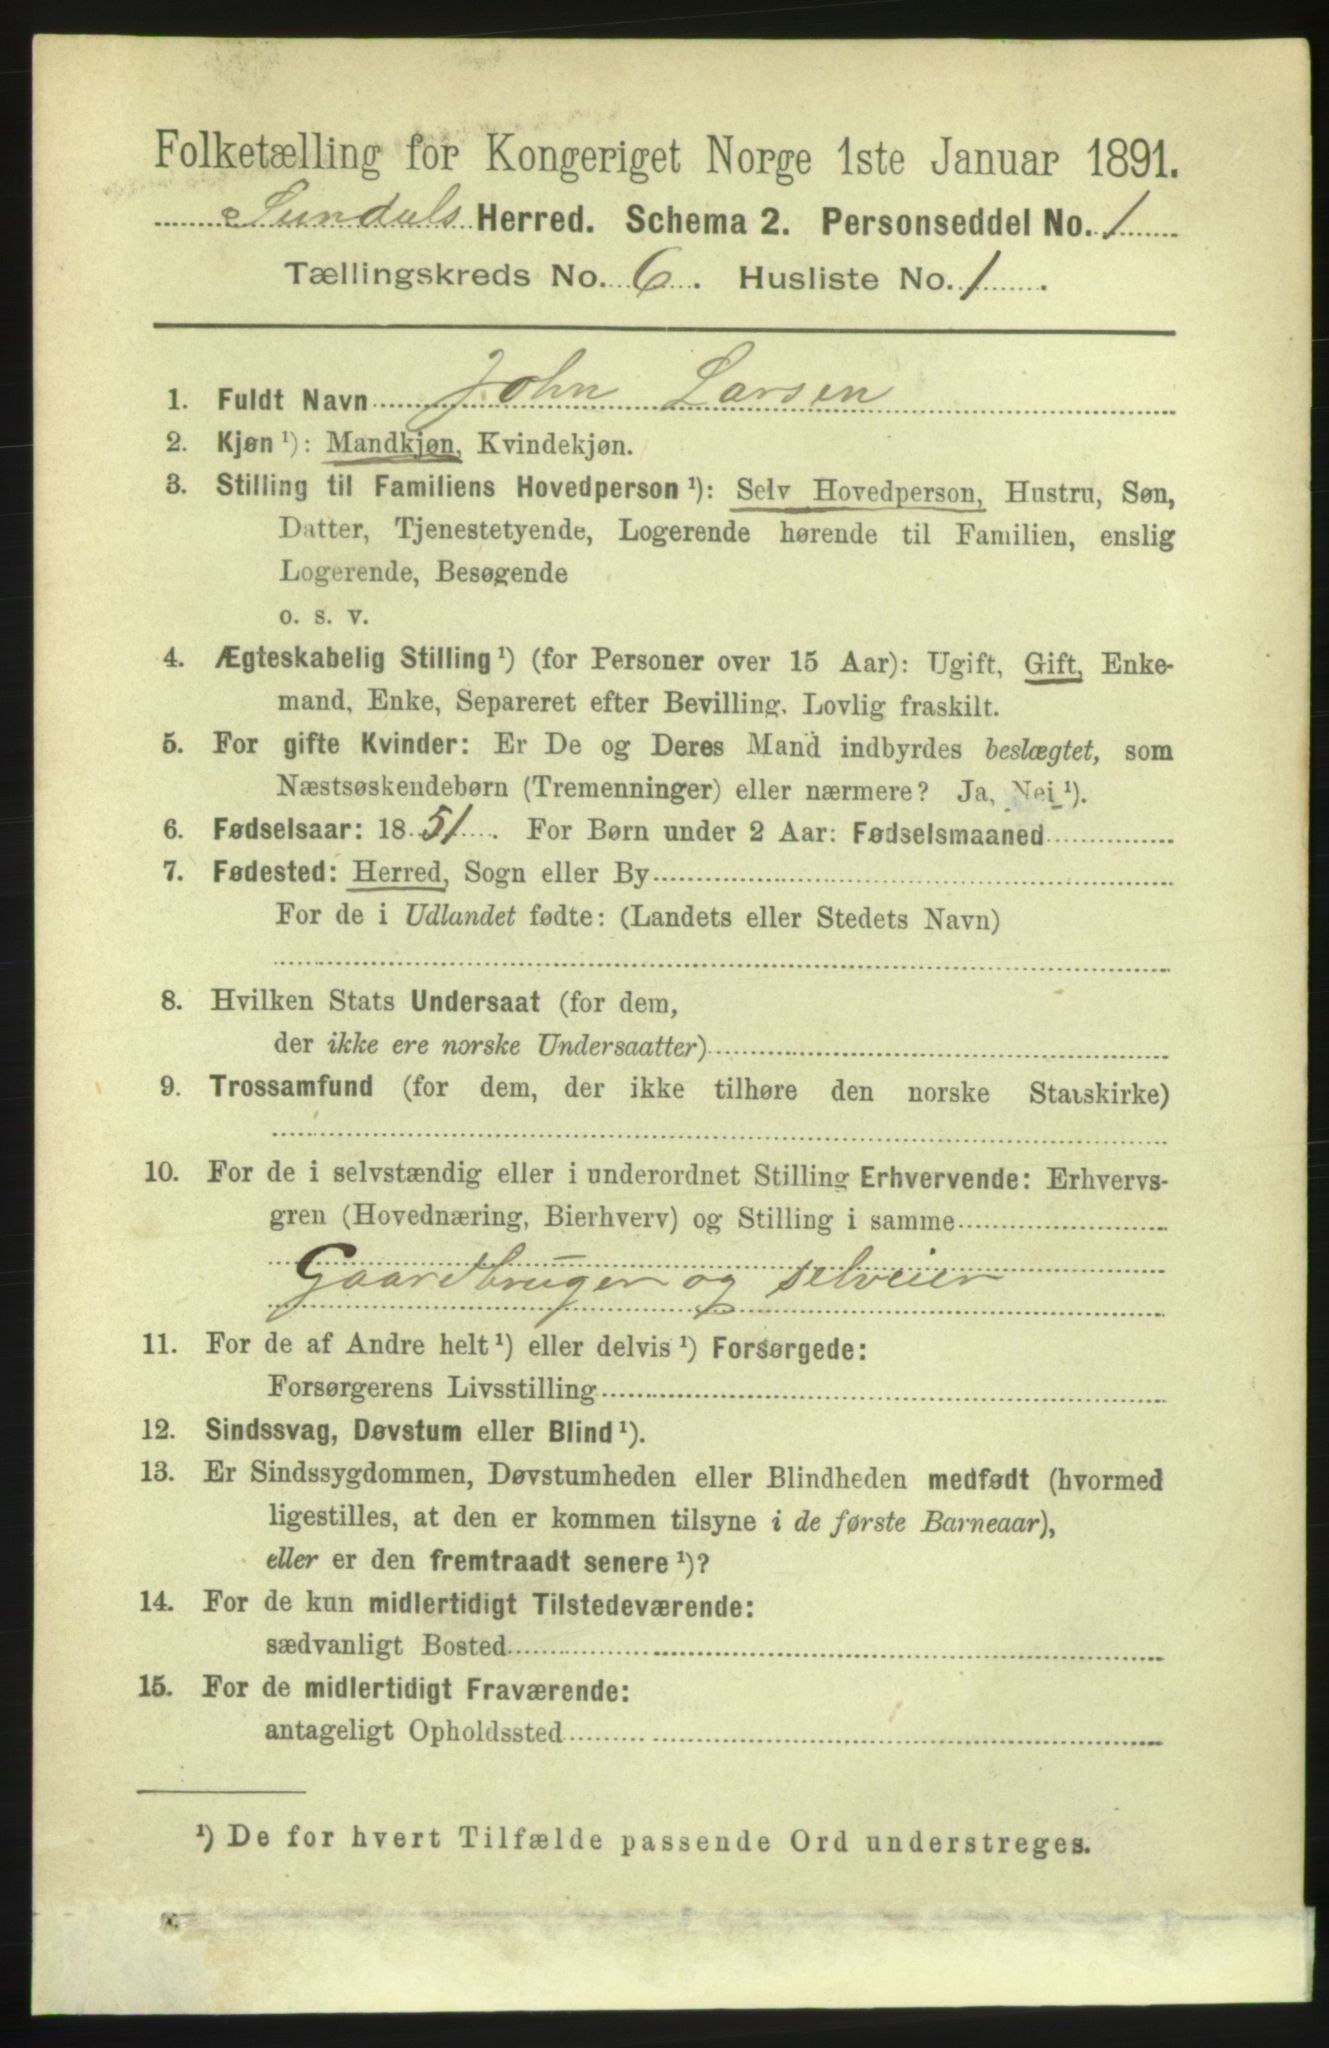 Folketælling for Kongeriget Norge 1ste Januar 1891.
Sundals Herred. Schema 2. Personseddel No. 1
Tællingskreds No. 6. Husliste No. 1.
1. Fuldt Navn John Larsen
2. Kjøn ¹): Mandkjøn, Kvindekjøn.
3. Stilling til Familiens Hovedperson ¹): Selv Hovedperson, Hustru, Søn,
Datter, Tjenestetyende, Logerende hørende til Familien, enslig
Logerende, Besøgende
o. s. v.
4. Ægteskabelig Stilling ¹) (for Personer over 15 Aar): Ugift, Gift, Enke-
mand, Enke, Separeret efter Bevilling. Lovlig fraskilt.
5. For gifte Kvinder: Er De og Deres Mand indbyrdes beslægtet, som
Næstsøskendebørn (Tremenninger) eller nærmere? Ja, Nei ¹).
6. Fødselsaar: 1851. For Børn under 2 Aar: Fødselsmaaned
7. Fødested: Herred, Sogn eller By
For de i Udlandet fødte: (Landets eller Stedets Navn)
8. Hvilken Stats Undersaat (for dem,
der ikke ere norske Undersaatter)
9. Trossamfund (for dem, der ikke tilhøre den norske Statskirke)
10. For de i selvstændig eller i underordnet Stilling Erhvervende: Erhvervs-
gren (Hovednæring, Bierhverv) og Stilling i samme
Gaardbruger og selveier
11. For de af Andre helt ¹) eller delvis ¹) Forsørgede:
Forsørgerens Livsstilling
12. Sindssvag, Døvstum eller Blind ¹).
13. Er Sindssygdommen, Døvstumheden eller Blindheden medfødt (hvormed
ligestilles, at den er kommen tilsyne i de første Barneaar),
eller er den fremtraadt senere ¹)?
14. For de kun midlertidigt Tilstedeværende:
sædvanligt Bosted
15. For de midlertidigt Fraværende:
antageligt Opholdssted
¹) De for hvert Tilfælde passende Ord understreges.